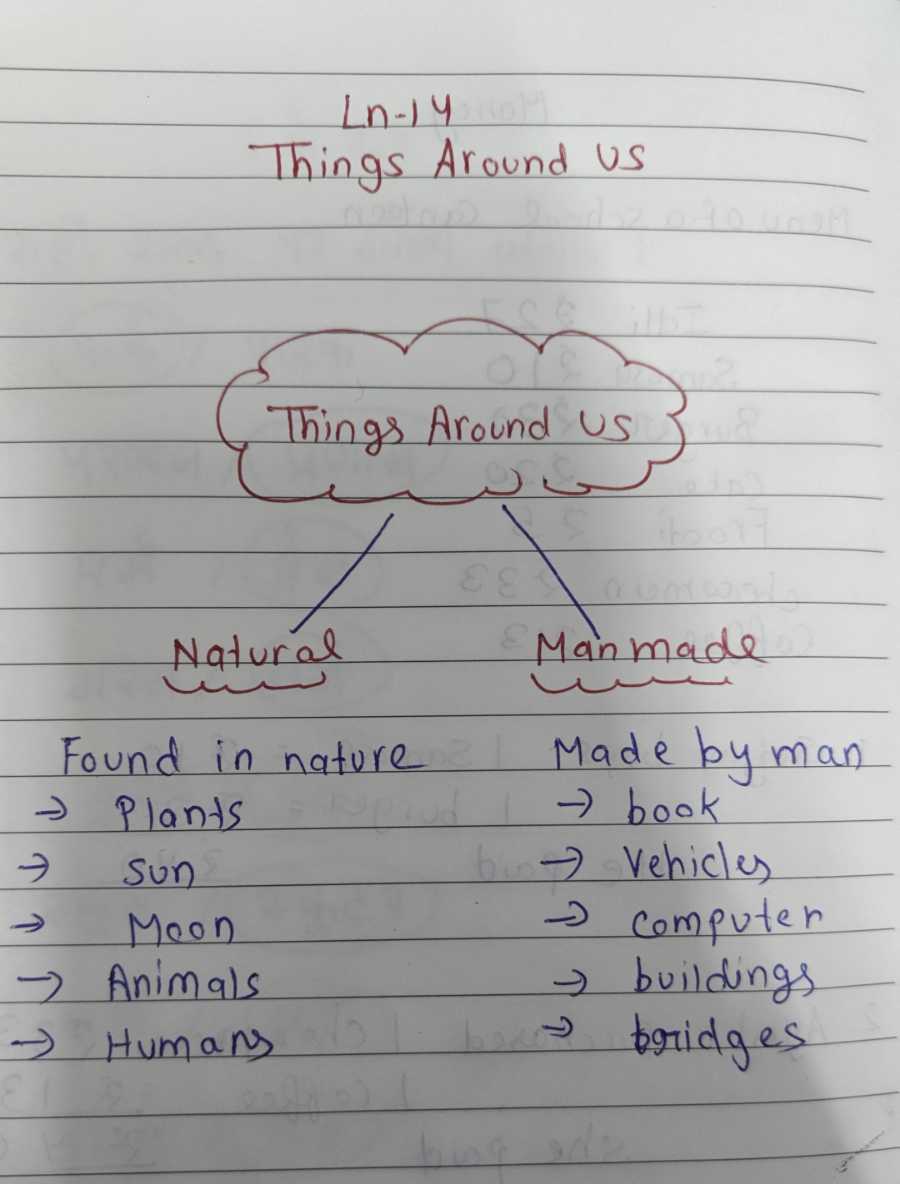 Ln-14
Things Around Us
Things Around Us
Natural Manmade
Found in nature Made by man
→ Plants → book
→ Sun → Vehicles
→ Moon → computer
→ Animals → buildings
→ Humans → bridges